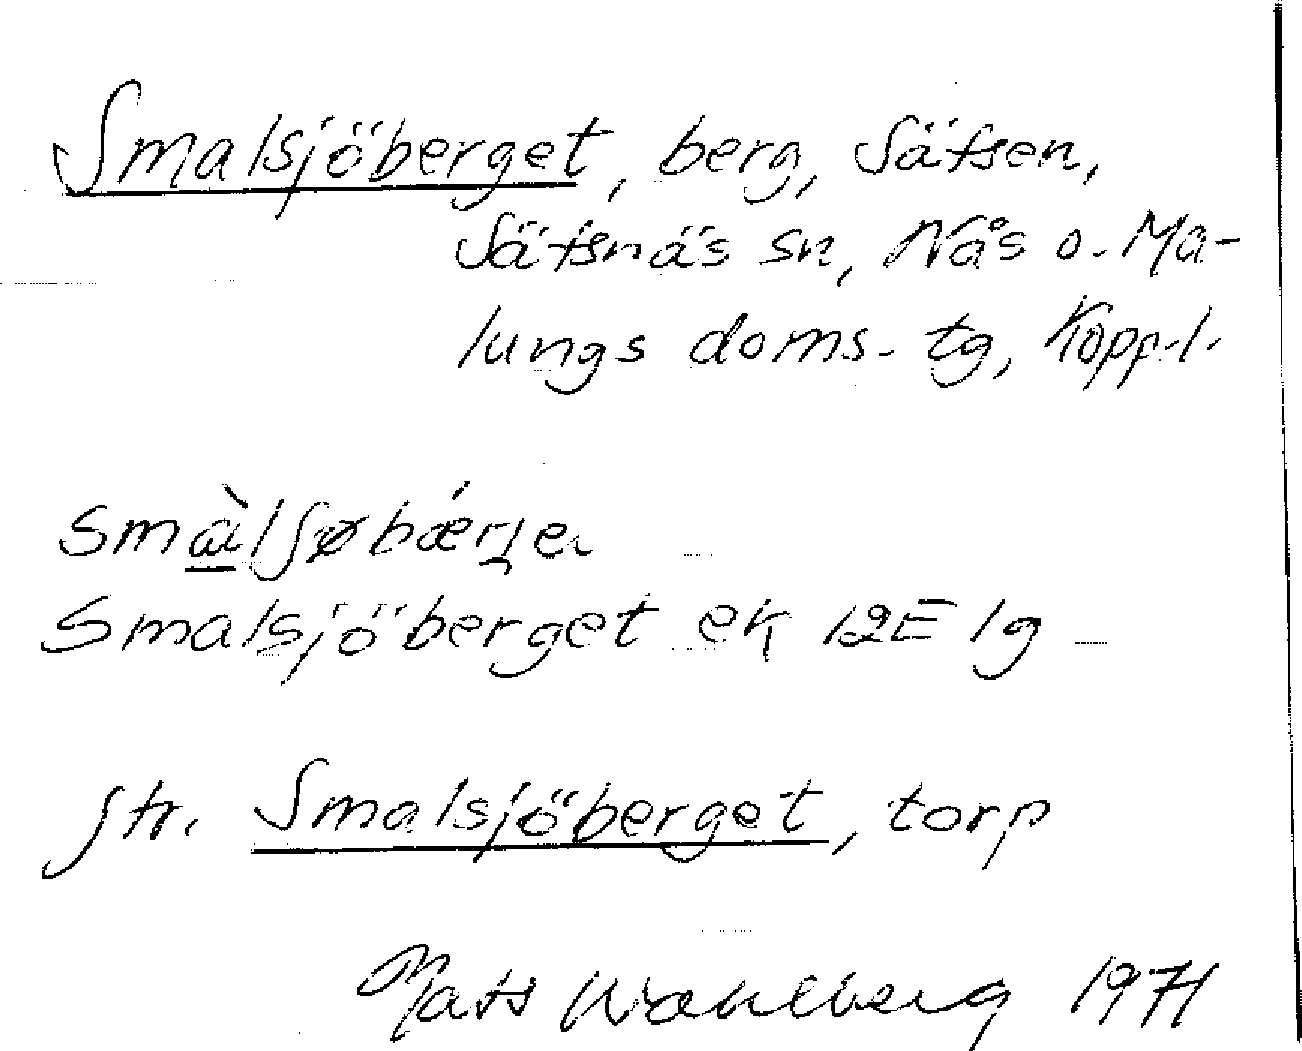 Smalsjöberget, berg, Säfsen,
Säfsnäs sn, Nås o. Ma-
lungs doms. tg, Kopp.l.
Smalsjöberget ek 12E 1g
Jfr. Smalsjöberget, torp
Mats Wahlberg 1971